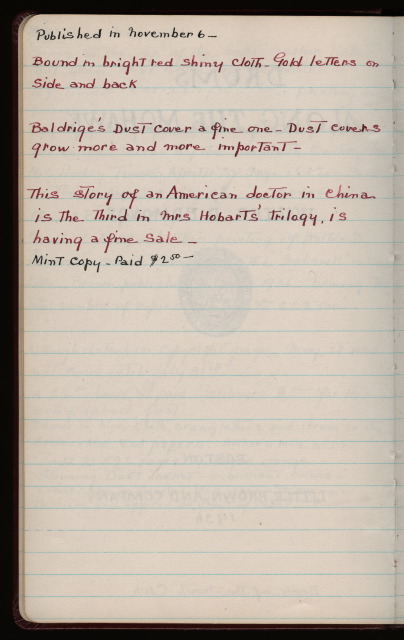 Published in november 6 —
Bound in bright red shiny cloth - Gold letters on
side and back
Baldrige's Dust cover a fine one - Dust covers
grow more and more important -
This story of an American doctor in China
is the Third in Mrs Hobarts' Trilogy, is
having a fine sale -
Mint copy - Paid $2.50 —